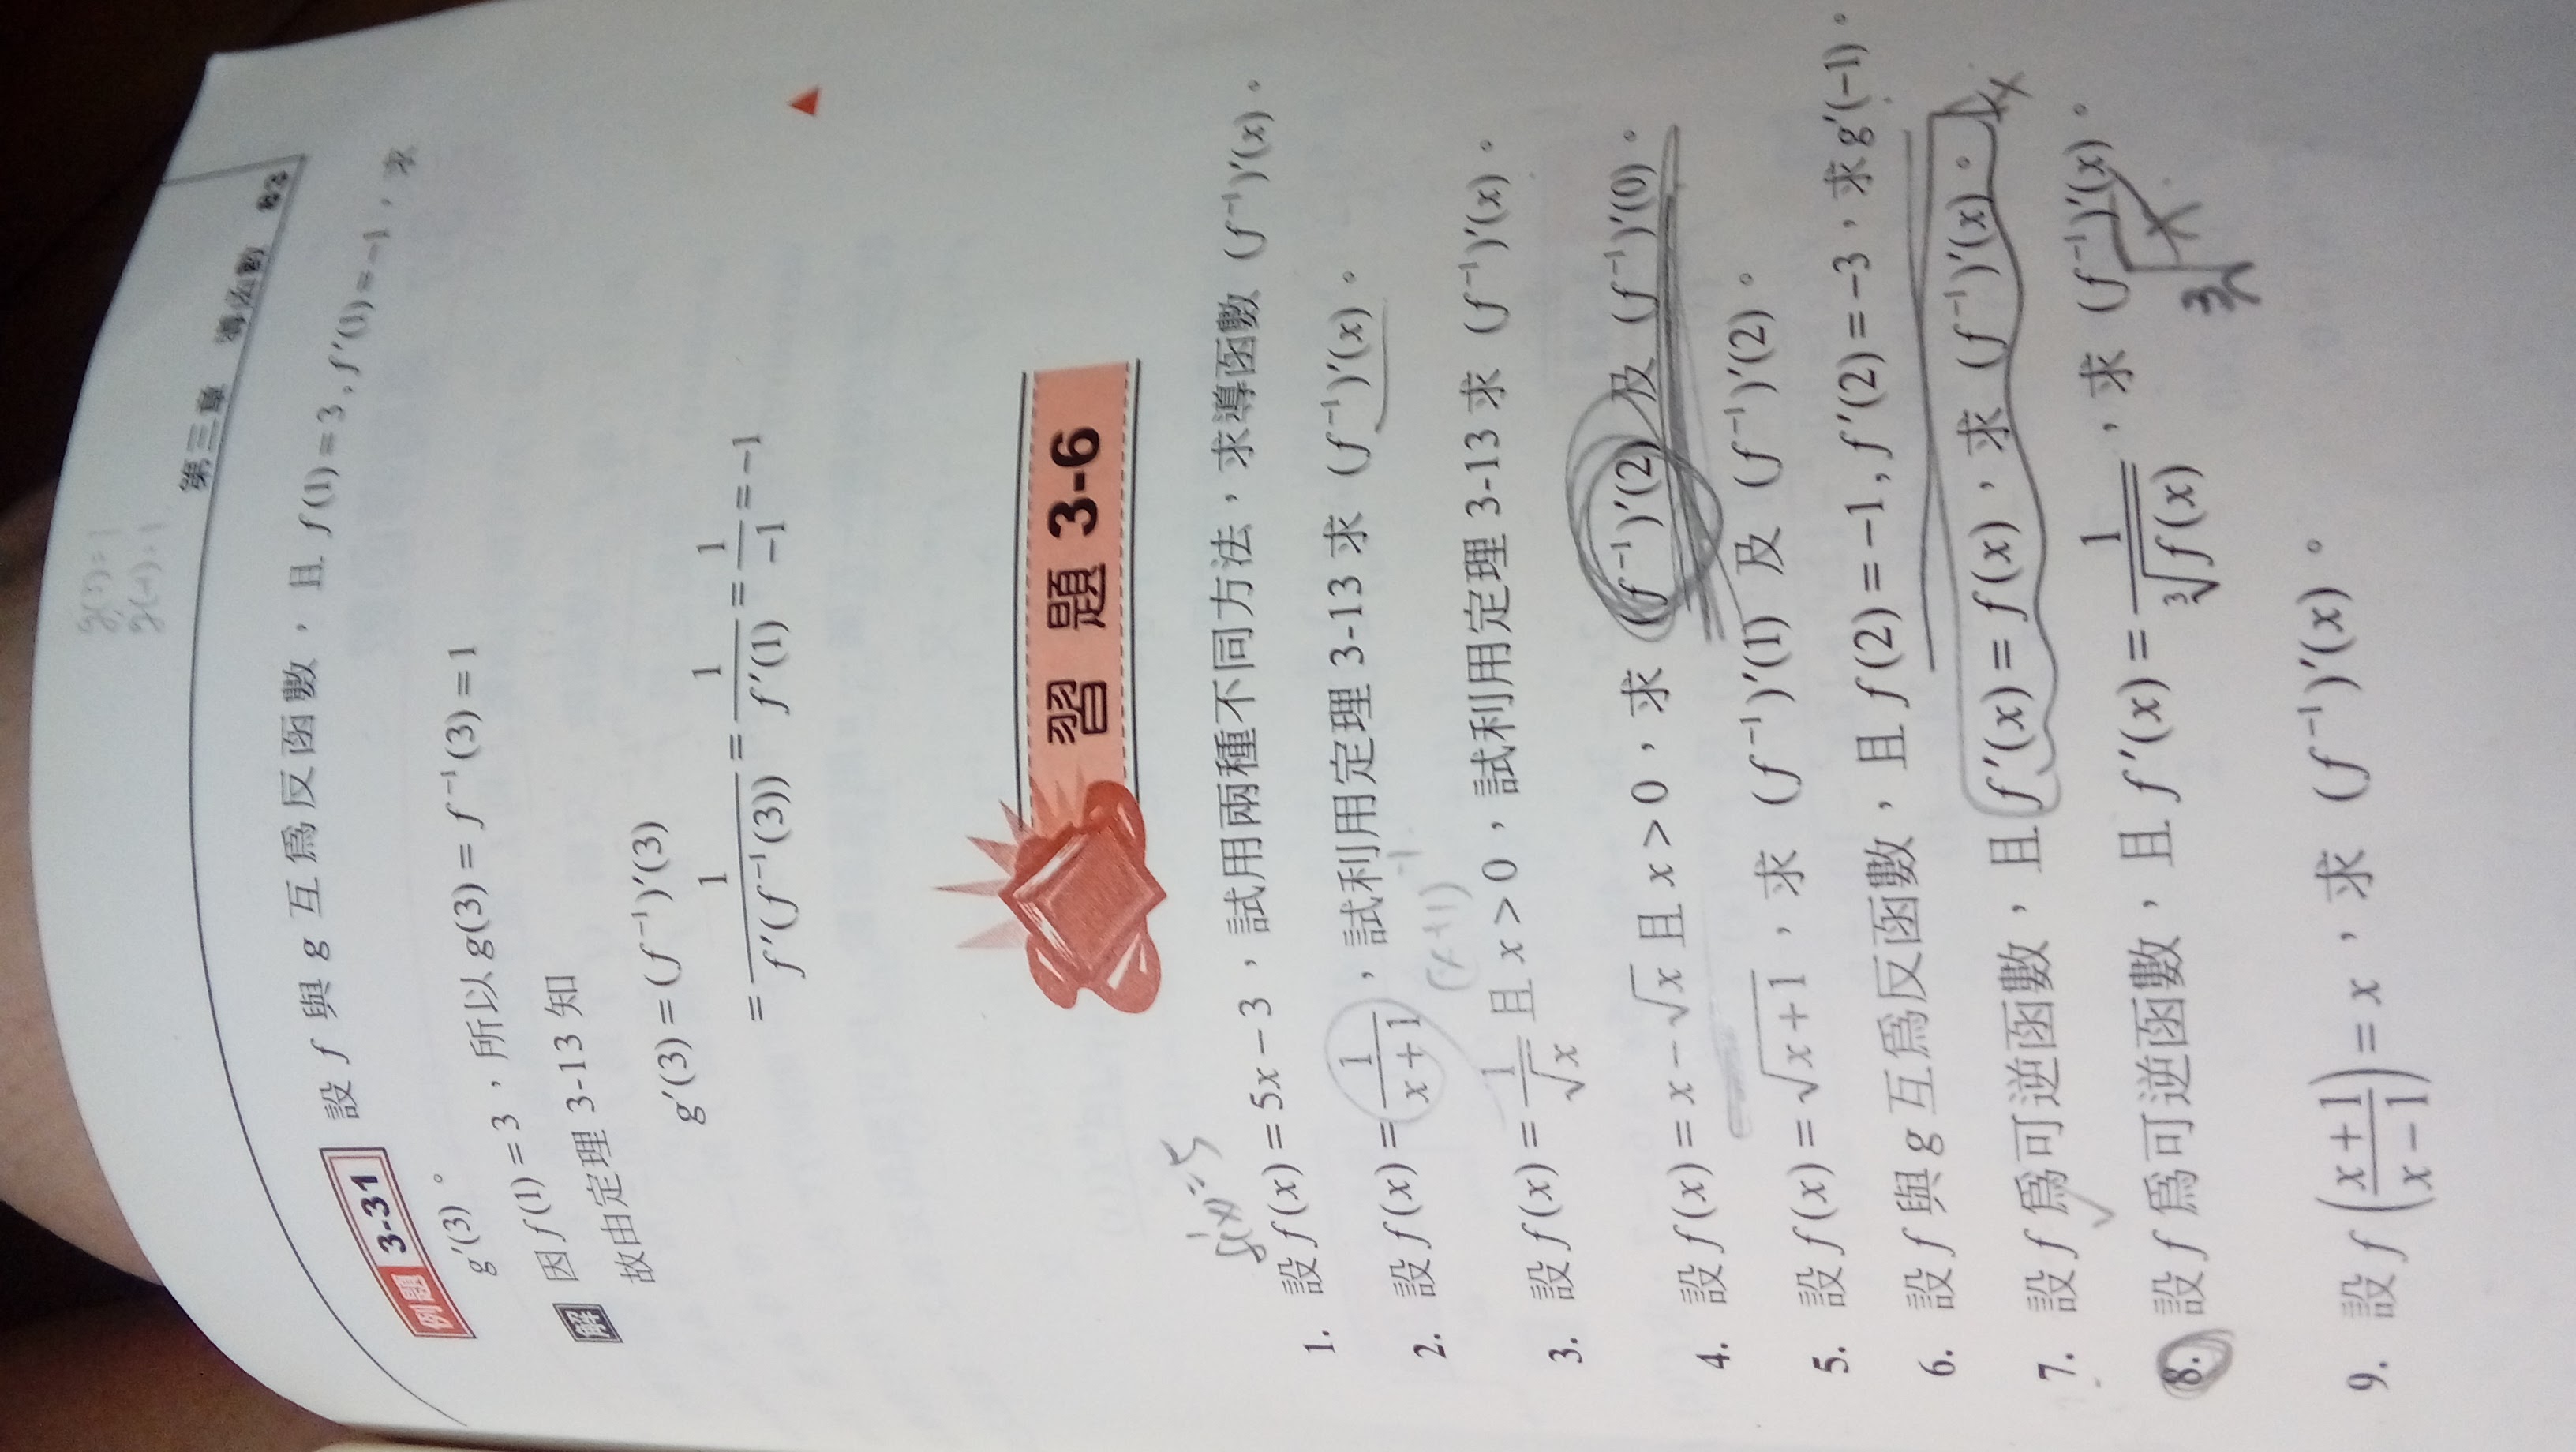 g(3)=1
g(-1)=1
第三章 導函數 83
例題 3-31 設 f 與 g 互為反函數，且 f(1) = 3, f′(1) = −1，求
g′(3)。
解 因 f(1) = 3，所以 g(3) = f⁻¹(3) = 1
故由定理 3-13 知
g′(3) = (f⁻¹)′(3)
= 1/f′(f⁻¹(3)) = 1/f′(1) = 1/−1 = −1
習題 3-6
f′(x)=5
1. 設 f(x) = 5x − 3，試用兩種不同方法，求導函數 (f⁻¹)′(x)。
2. 設 f(x) = 1/(x+1)，試利用定理 3-13 求 (f⁻¹)′(x)。
(x+1)⁻¹
3. 設 f(x) = 1/√x 且 x > 0，試利用定理 3-13 求 (f⁻¹)′(x)。
4. 設 f(x) = x − √x 且 x > 0，求 (f⁻¹)′(2) 及 (f⁻¹)′(0)。
5. 設 f(x) = √(x+1)，求 (f⁻¹)′(1) 及 (f⁻¹)′(2)。
6. 設 f 與 g 互為反函數，且 f(2) = −1, f′(2) = −3，求 g′(−1)。
7. 設 f 為可逆函數，且 f′(x) = f(x)，求 (f⁻¹)′(x)。
8. 設 f 為可逆函數，且 f′(x) = 1/∛f(x)，求 (f⁻¹)′(x)。
∛x
9. 設 f((x+1)/(x−1)) = x，求 (f⁻¹)′(x)。